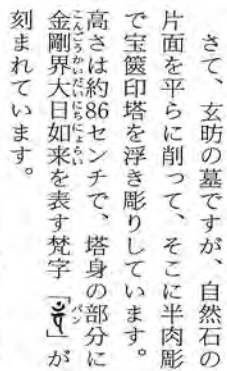 さて、玄昉の墓ですが、自然石の
片面を平らに削って、そこに半肉彫
で宝篋印塔を浮き彫りしています。
高さは約86センチで、塔身の部分に
金剛界大日如来を表す梵字「𑖪𑖽」が
刻まれています。